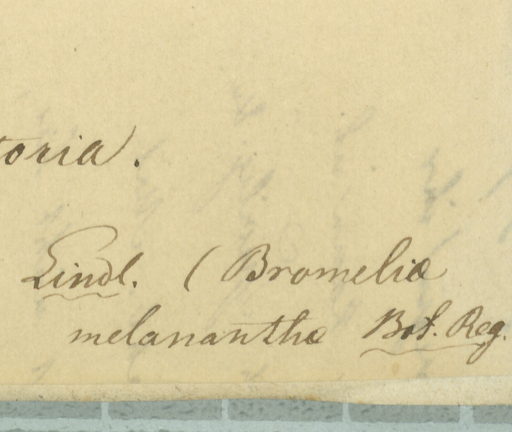 toria.
Lindl. (Bromelia
melanantha Bot. Reg.